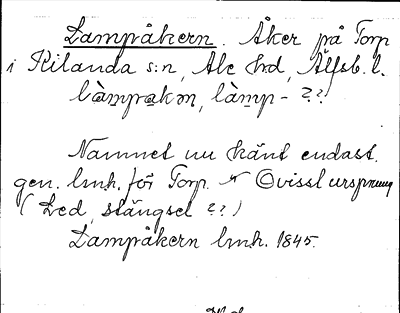 Lampåkern. Åker på Torp
i Kilanda s:n, Ale hrd, Älfsb. l.
làm̥pak ən, làmp- ??
Namnet nu känt endast
gen. lmk. för Torp. Ovisst ursprung
(Led, stängsel ??)
Lampåkern lmk. 1845.